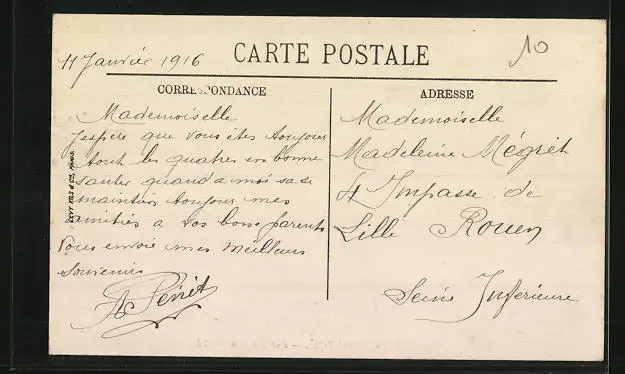 11 Janvier 1916
CARTE POSTALE
10
CORRESPONDANCE
Mademoiselle
jespere que vous êtes toujour
tout les quatres en bonne
santer quand a moi sa se
maintien toujour mes
amitiés a vos bons parents
Vous envoie mes meilleurs
souvenirs
LEVY FILS & Cie, PARIS
ADRESSE
Mademoiselle
Madeleine Mégret
4 Impasse de
Lille Rouen
Seine Inferieure